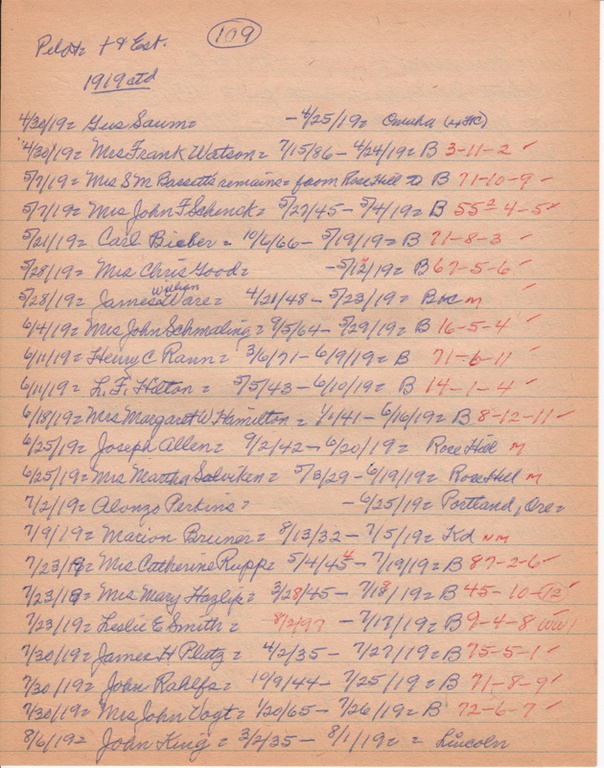 109
Pilot = + & Est.
1919 ctd
4/30/19 = Gus Saum = - 4/25/19 = Omaha
4/30/19 = Mrs Frank Watson = 7/15/86 - 4/24/19 = B 3-11-2 ✓
5/7/19 = Mrs S M Bassett's remains = from Rose Hill to B 71-10-9 ✓
5/7/19 = Mrs John F Schenck = 5/27/45 - 5/4/19 = B 55-4-5 ✓
5/21/19 = Carl Bieber = 10/6/66 - 5/19/19 = B 71-8-3 ✓
5/28/19 = Mrs Chris Good = - 5/12/19 = B 67-5-6 ✓
5/28/19 = James Ware = 4/21/48 - 5/23/19 = M ✓
6/4/19 = Mrs John Schmaling = 9/5/64 - 5/29/19 = B 16-5-4 ✓
6/11/19 = Henry C Rann = 3/6/71 - 6/9/19 = B 71-6-11 ✓
6/11/19 = L. F. Hilton = 5/5/43 - 6/10/19 = B 14-1-4 ✓
6/18/19 = Mrs Margaret W Hamilton = 1/1/41 - 6/16/19 = B 8-12-11 ✓
6/25/19 = Joseph Allen = 9/2/42 - 6/20/19 = Rose Hill M
6/25/19 = Mrs Martha = 5/8/29 - 6/19/19 = Rose Hill M
7/2/19 = Alonzo Perkins = - 6/25/19 = Portland, Ore =
7/9/19 = Marion Bruner = 8/13/32 - 7/5/19 = Kd NM
7/23/19 = Mrs Catherine Rupp = 5/4/45 4 - 7/19/19 = B 87-2-6 ✓
7/23/19 = Mrs Mary Hazlip = 3/28/45 - 7/18/19 = B 45-10-(12) ✓
7/23/19 = Leslie E Smith = 8/2/97 - 7/17/19 = B 9-4-8 WW1
7/30/19 = James H Plutz = 4/2/35 - 7/27/19 = B 75-5-1 ✓
7/30/19 = John Rahlfs = 10/9/44 - 7/25/19 = B 71-8-9 ✓
7/30/19 = Mrs John Vogt = 1/20/65 - 7/26/19 = B 72-6-7 ✓
8/6/19 = John King = 3/2/35 - 8/1/19 = = Lincoln